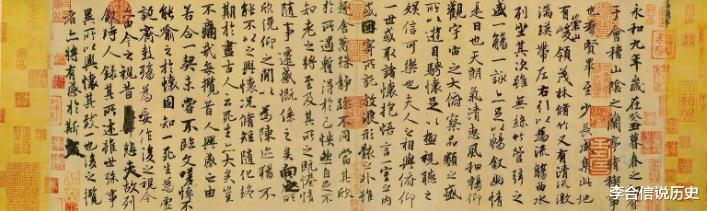 永和九年歲在癸丑暮春之初會
于會稽山陰之蘭亭脩稧事
也羣賢畢至少長咸集此地
有峻領茂林脩竹又有清流激
湍暎帶左右引以為流觴曲水
列坐其次雖無絲竹管弦之
盛一觴一詠亦足以暢敘幽情
是日也天朗氣清惠風和暢仰
觀宇宙之大俯察品類之盛
所以遊目騁懷足以極視聽之
娛信可樂也夫人之相與俯仰
一世或取諸懷抱悟言一室之內
或因寄所託放浪形骸之外雖
趣舍萬殊靜躁不同當其欣
於所遇蹔得於己怏然自足不
知老之將至及其所之既惓情
隨事遷感慨係之矣向之所
欣俛仰之閒以為陳迹猶不
能不以之興懷況脩短隨化終
期於盡古人云死生亦大矣豈
不痛哉每攬昔人興感之由
若合一契未嘗不臨文嗟悼不
能喻之於懷固知一死生為虛
誕齊彭殤為妄作後之視今
亦由今之視昔悲夫故列
敘時人錄其所述雖世殊事
異所以興懷其致一也後之攬
者亦將有感於斯文
李合信说历史